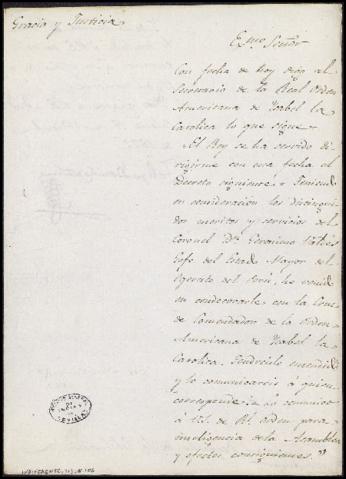 Gracia y Justicia
Exmo Señor
Con fecha de hoy digo al
Secretario de la Real Orden
Americana de Ysabel la
Catolica lo que sigue.
"El Rey se ha servido di-
rigirme con esta fecha el
Decreto siguiente. = Teniendo
en consideracion los distingui-
dos meritos y servicios del
Coronel Dn. Geronimo Valdés
Gefe del Estado Mayor del
Egercito del Perú, he venido
en condecorarle con la Cruz
de Comendador de la Orden
Americana de Ysabel la
Catolica. Tendreislo entendido
y lo comunicareis á quien
corresponde. = Lo comunico
á V.E. de Rl. orden para
inteligencia de la Asamblea
y efectos consiguientes."
SEVILLA